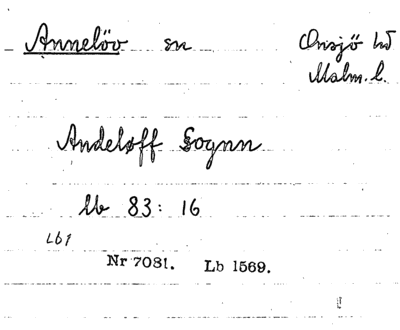 Annelöv sn Onsjö hd
Malm. l.
Andeløff Sognn
lb 83: 16
Lb1
Nr 7081. Lb 1569.